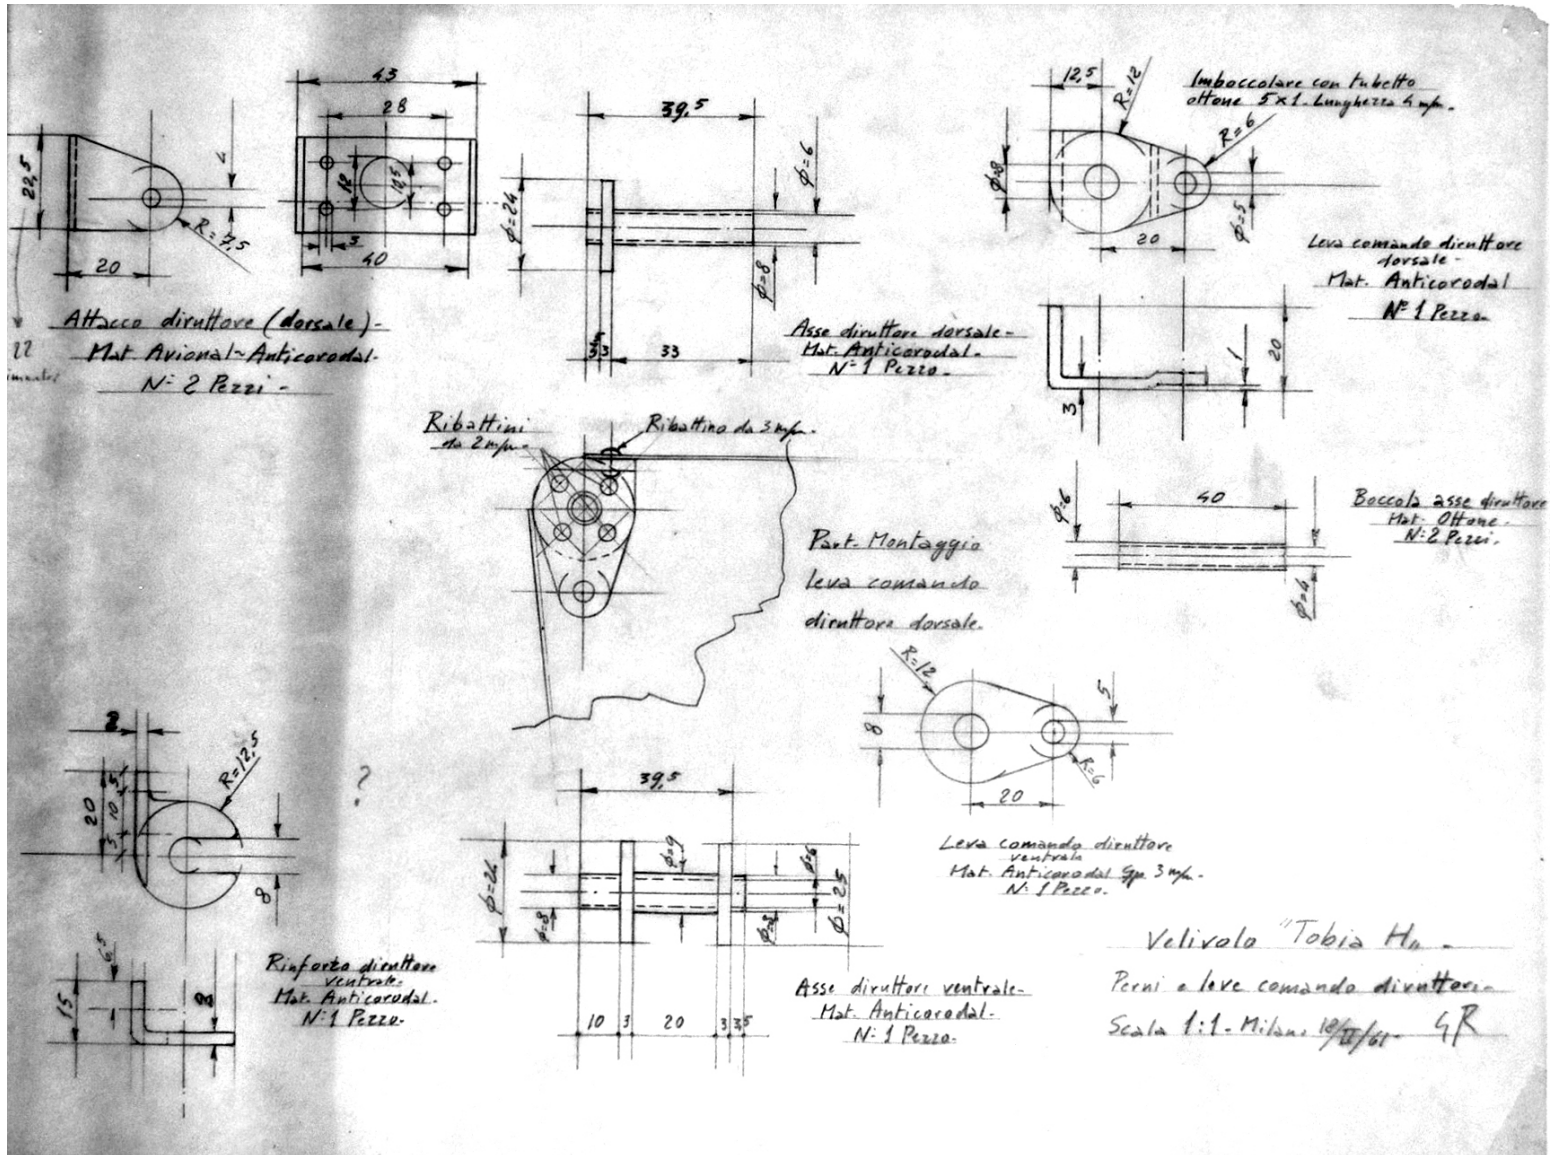 43
28
22,5
4
18
10,5
R=7,5
3
20
40
Attacco diruttore (dorsale)-
Mat Avional-Anticorodal-
N: 2 Pezzi -
22
39,5
φ=6
φ=24
φ=8
3,5
3
33
Asse diruttore dorsale-
Mat. Anticorodal-
N: 1 Pezzo-
12,5
R=12
Imboccolare con tubetto
ottone 5x1- Lunghezza 4 m/m.
R=6
φ=8
φ=5
20
Leva comando diruttore
dorsale-
Mat. Anticorodal
N: 1 Pezzo-
1
20
3
Ribattini
da 2 m/m-
Ribattino da 3 m/m.
Part. Montaggio
leva comando
diruttore dorsale.
φ=6
40
φ=4
Boccola asse diruttore
Mat. Ottone-
N: 2 Pezzi.
R=12
8
5
R=6
20
Leva comando diruttore
ventrale
Mat. Anticorodal Sp. 3 m/m-
N: 1 Pezzo.
2
R=12,5
20
5
10
5
8
?
6,5
15
3
Rinforzo diruttore
ventrale-
Mat. Anticorodal-
N: 1 Pezzo-
39,5
φ=24
φ=8
φ=9
φ=8
φ=6
φ=25
10
3
20
3
3,5
Asse diruttore ventrale-
Mat. Anticorodal-
N: 1 Pezzo.
Velivolo "Tobia H" -
Perni e leve comando diruttori-
Scala 1:1- Milano 18/II/61- GR